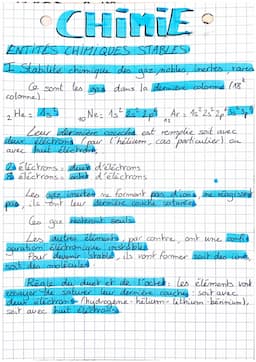 CHIMIE
ENTITÉS CHIMIQUES STABLES
I- Stabilité chimique des gaz nobles, inertes, rares
Ce sont les gaz dans la dernière colonne (18e
colonne)
2 He : 1s² 10 Ne : 1s² 2s² 2p⁶ Ar : 1s² 2s² 2p⁶ 3s² 3p⁶
Leur dernière couche est remplie soit avec
deux électrons (pour l'hélium, cas particulier) ou
avec huit électrons.
2 électrons : duet d'électrons
8 électrons : octet d'électrons
Les gaz inertes ne forment pas d'ions, ne réagissent
pas, ils ont leur dernière couche saturée
Ces gaz restent seuls.
Les autres éléments, par contre, ont une confi
guration électronique instable.
Pour devenir stable, ils vont former soit des ions,
soit des molécules.
Règle du duet et de l'octet : les éléments vont
essayer de saturer leur dernière couche : soit avec
deux électrons (hydrogène - hélium - lithium - béryllium),
soit avec huit électrons.